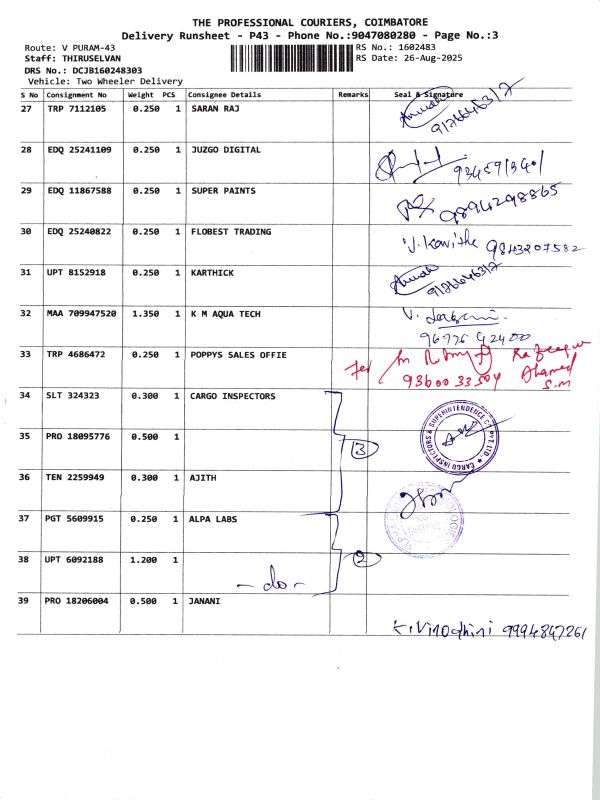 THE PROFESSIONAL COURIERS, COIMBATORE
Delivery Runsheet - P43 - Phone No.:9047080280 - Page No.:3
Route: V PURAM-43 RS No.: 1602483
Staff: THIRUSELVAN RS Date: 26-Aug-2025
DRS No.: DCJB160248303
Vehicle: Two Wheeler Delivery
S No Consignment No Weight PCS Consignee Details Remarks Seal & Signature
27 TRP 7112105 0.250 1 SARAN RAJ
28 EDQ 25241109 0.250 1 JUZGO DIGITAL
29 EDQ 11867588 0.250 1 SUPER PAINTS 9894298865
30 EDQ 25240822 0.250 1 FLOBEST TRADING V. Kavitha 9843207582
31 UPT 8152918 0.250 1 KARTHICK
32 MAA 709947520 1.350 1 K M AQUA TECH
33 TRP 4686472 0.250 1 POPPYS SALES OFFIE
Ahamed
93600 33504 S.M
34 SLT 324323 0.300 1 CARGO INSPECTORS
35 PRO 18095776 0.500 1
3
36 TEN 2259949 0.300 1 AJITH
37 PGT 5609915 0.250 1 ALPA LABS
38 UPT 6092188 1.200 1 2
- do -
39 PRO 18206004 0.500 1 JANANI
K. Vinodhini 9994847261
CARGO INSPECTORS & SUPERINTENDENCE CO. PVT. LTD.